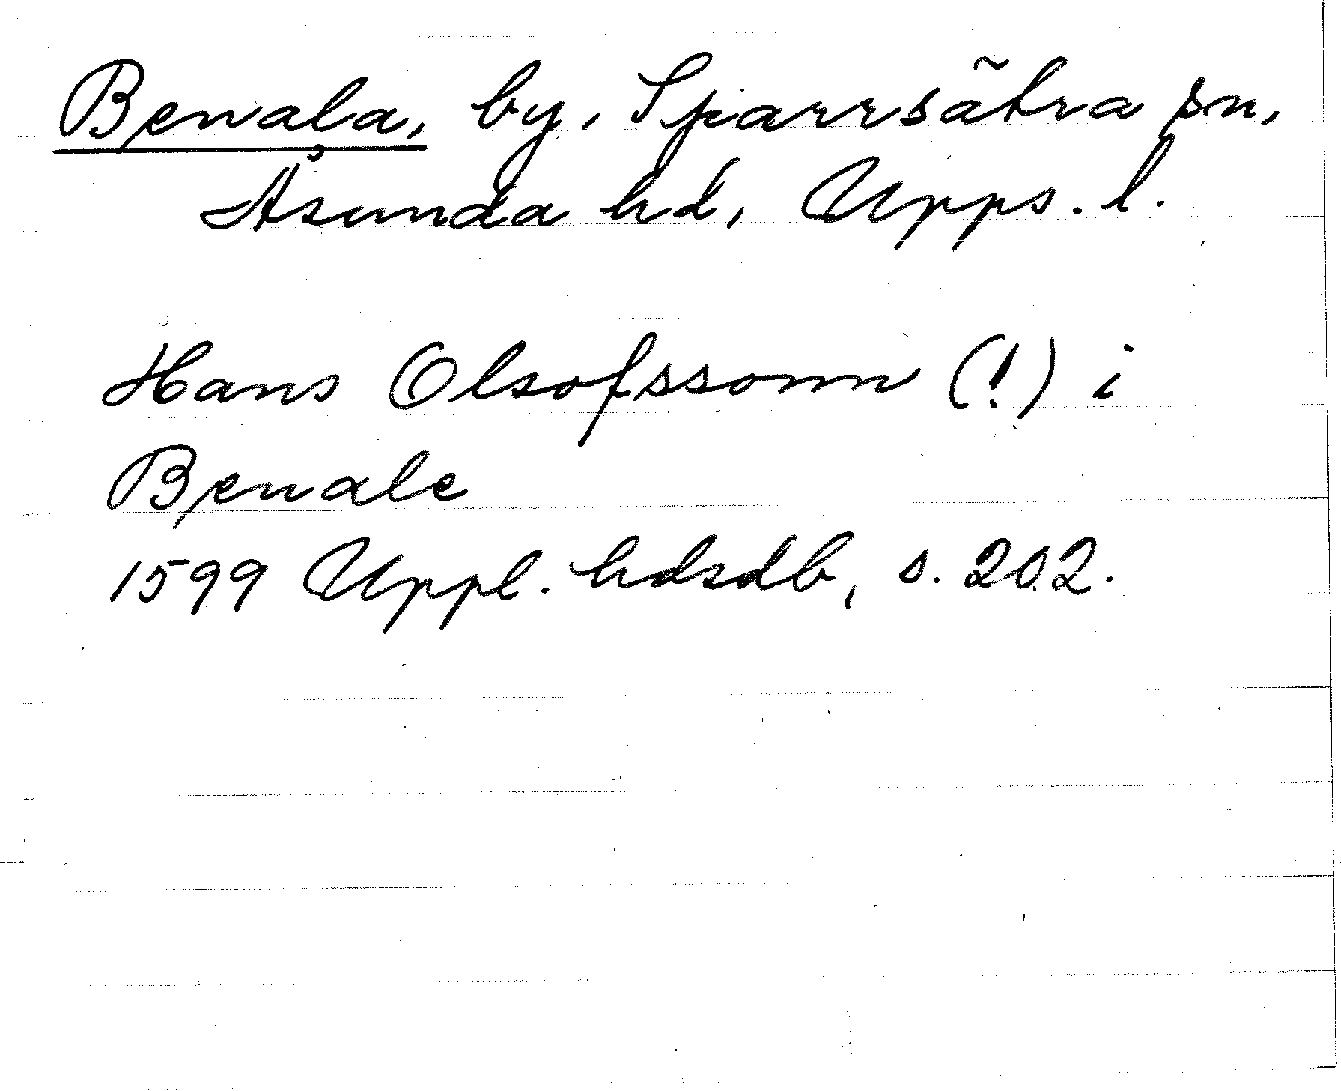 Benala, by, Sparrsätra sn,
Åsunda hd, Upps. l.
Hans Olsofssonn (!) i
Benale
1599 Uppl. hdsdb, s. 202.